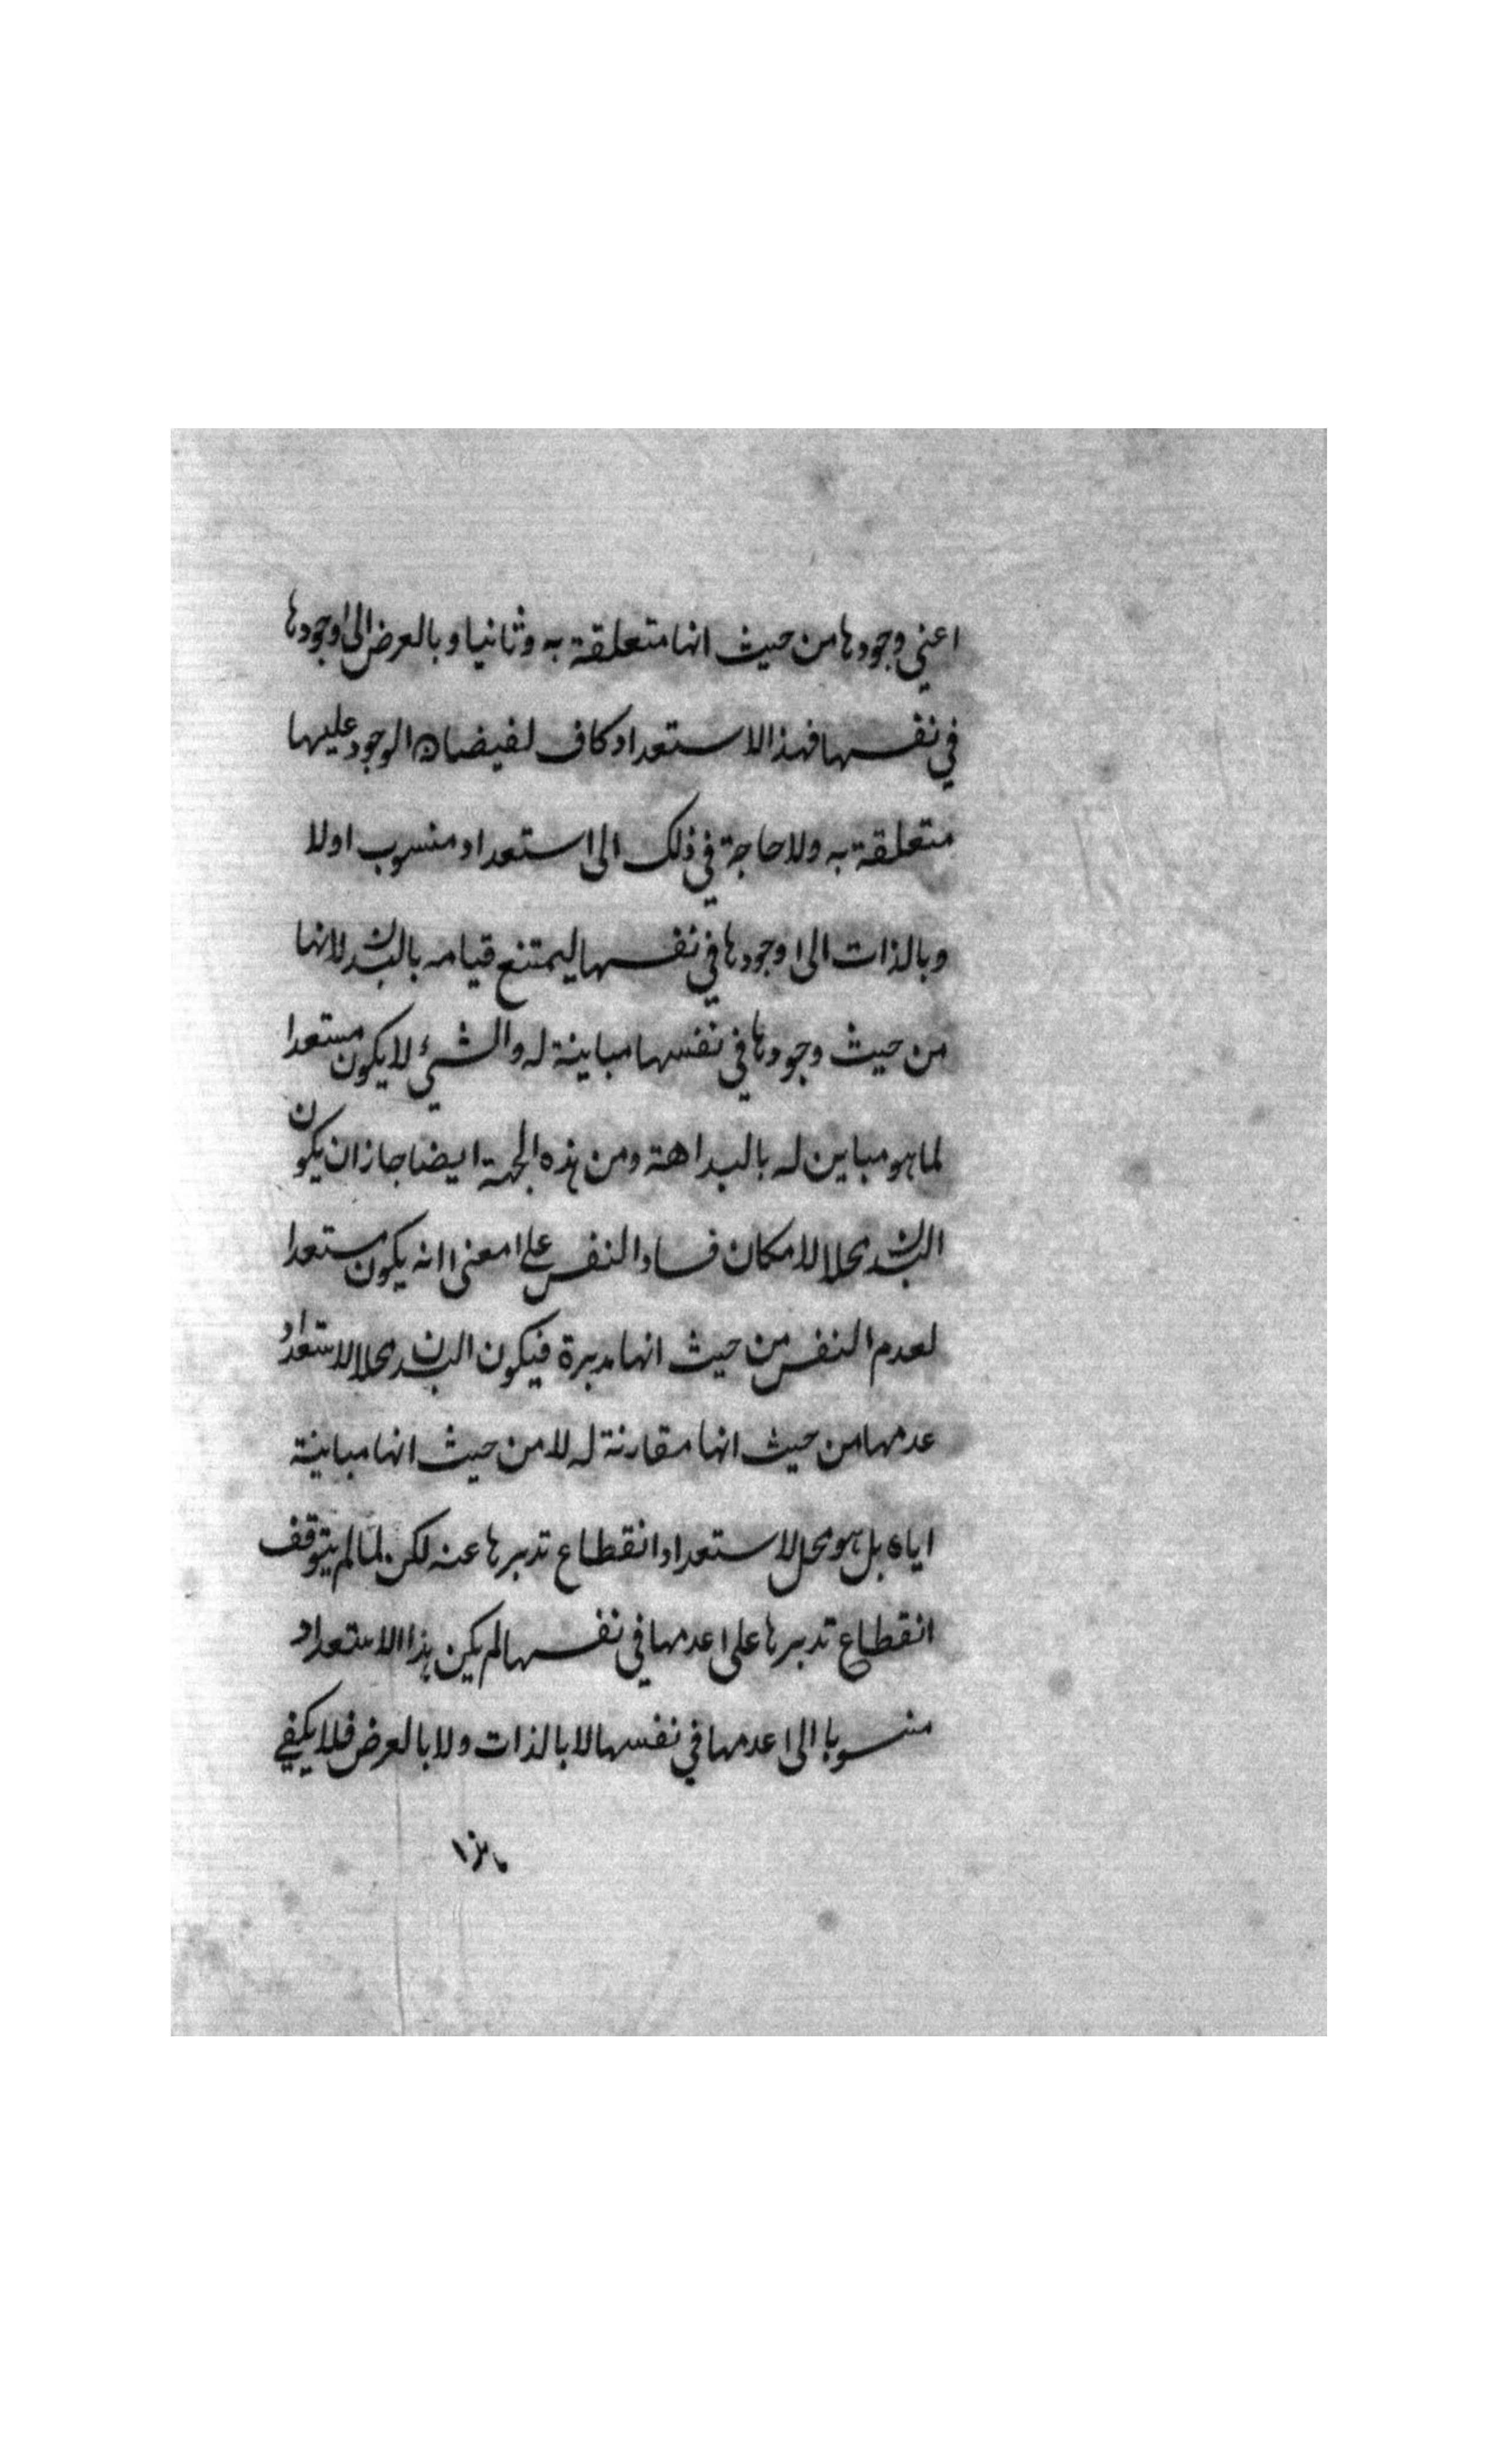 اعني وجودها من حيث انها متعلقة به وثانيا وبالعرض الى وجودها
في نفسها فهذا الاستعداد كاف لفيضان الوجود عليها
متعلقة به ولا حاجة في ذلك الى استعداد منسوب اولا
وبالذات الى وجودها في نفسها ليمتنع قيامه بالبدن لانها
من حيث وجودها في نفسها مباينة له والشيء لا يكون مستعدا
لما هو مباين له بالبداهة ومن هذه الجهة ايضا جاز ان يكون
البدن محلا لامكان فساد النفس على معنى انه يكون مستعدا
لعدم النفس من حيث انها مدبرة فيكون البدن محلا لاستعداد
عدمها من حيث انها مقارنة له لا من حيث انها مباينة
اياه بل هو محل لاستعداد انقطاع تدبيرها عنه لكن لما لم يتوقف
انقطاع تدبيرها على عدمها في نفسها لم يكن هذا الاستعداد
منسوبا الى عدمها في نفسها لا بالذات ولا بالعرض فلا يكفي